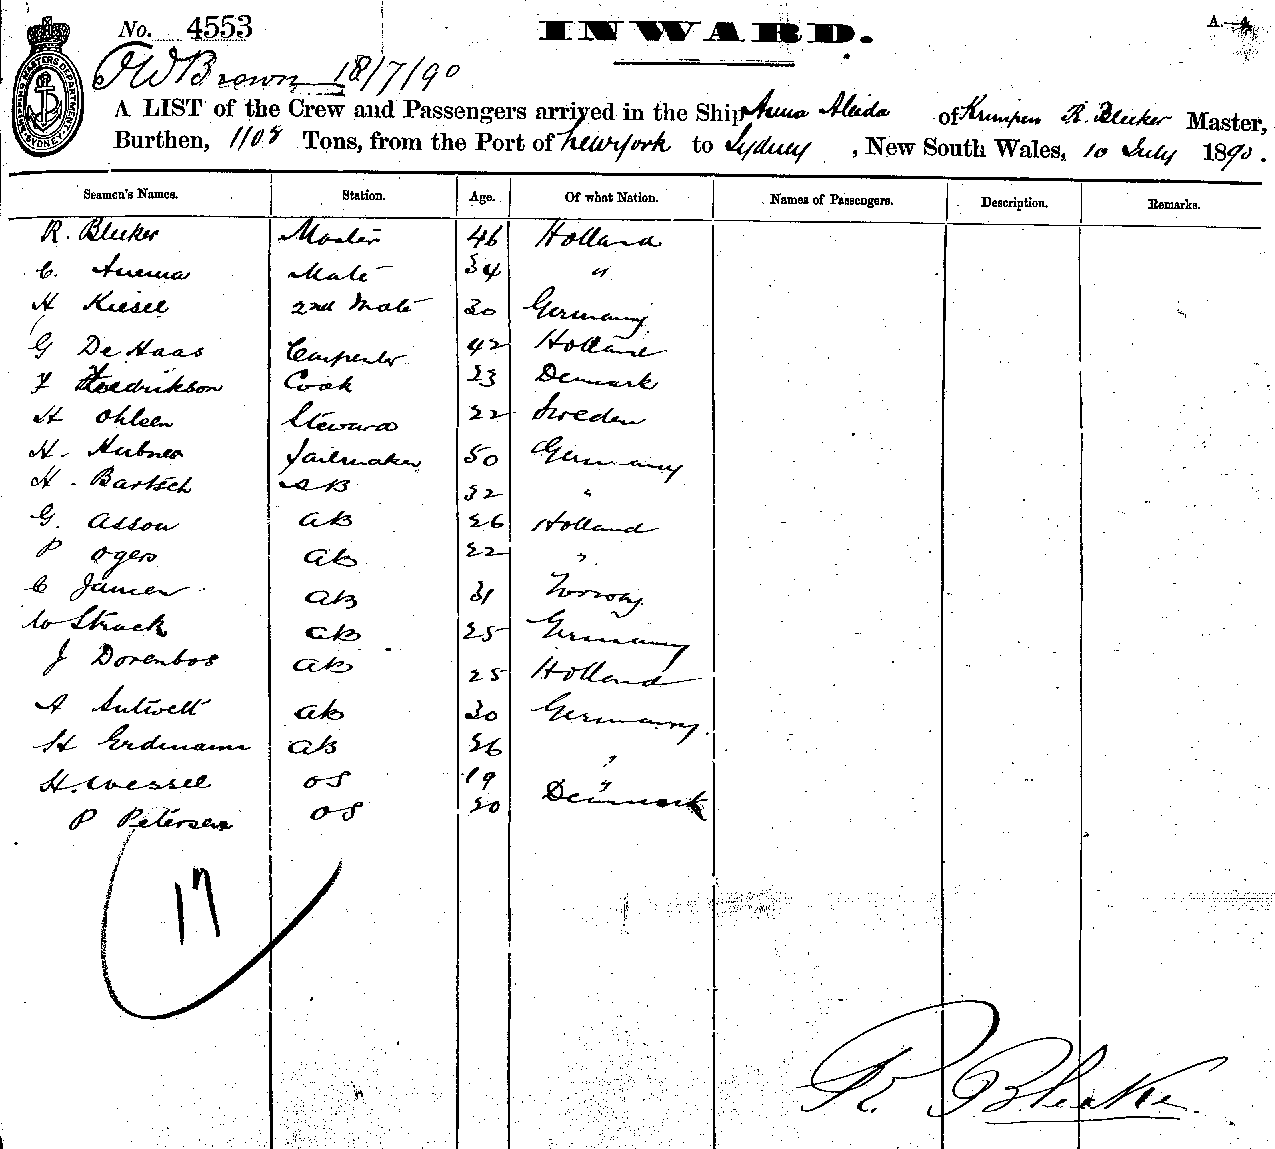 No. 4553
INWARD.
A.
J W Brown 18/7/90
A LIST of the Crew and Passengers arrived in the Ship Anna Aleida of Krimpen R. Bleeker Master,
Burthen, 1108 Tons, from the Port of Newyork to Sydney, New South Wales, 10 July 1890.
Seamen's Names. Station. Age. Of what Nation. Names of Passengers. Description. Remarks.
R. Bleeker Master 46 Holland
C. Anema Mate 34 "
H Kiesel 2nd Mate 30 Germany
G De Haas Carpenter 42 Holland
F Fredrikson Cook 23 Denmark
H Ohlsen Steward 22 Sweden
H. Hubner Sailmaker 50 Germany
H. Bartsch AB 32 "
G. Assou AB 26 Holland
P Ogers AB 22 "
C Jansen AB 31 Norway
W Struck AB 25 Germany
J Dorenbos AB 25 Holland
A AB 30 Germany
H Erdmann AB 26 "
H. Wessel OS 19 "
P Petersen OS 20 Denmark
17
R. Bleeker